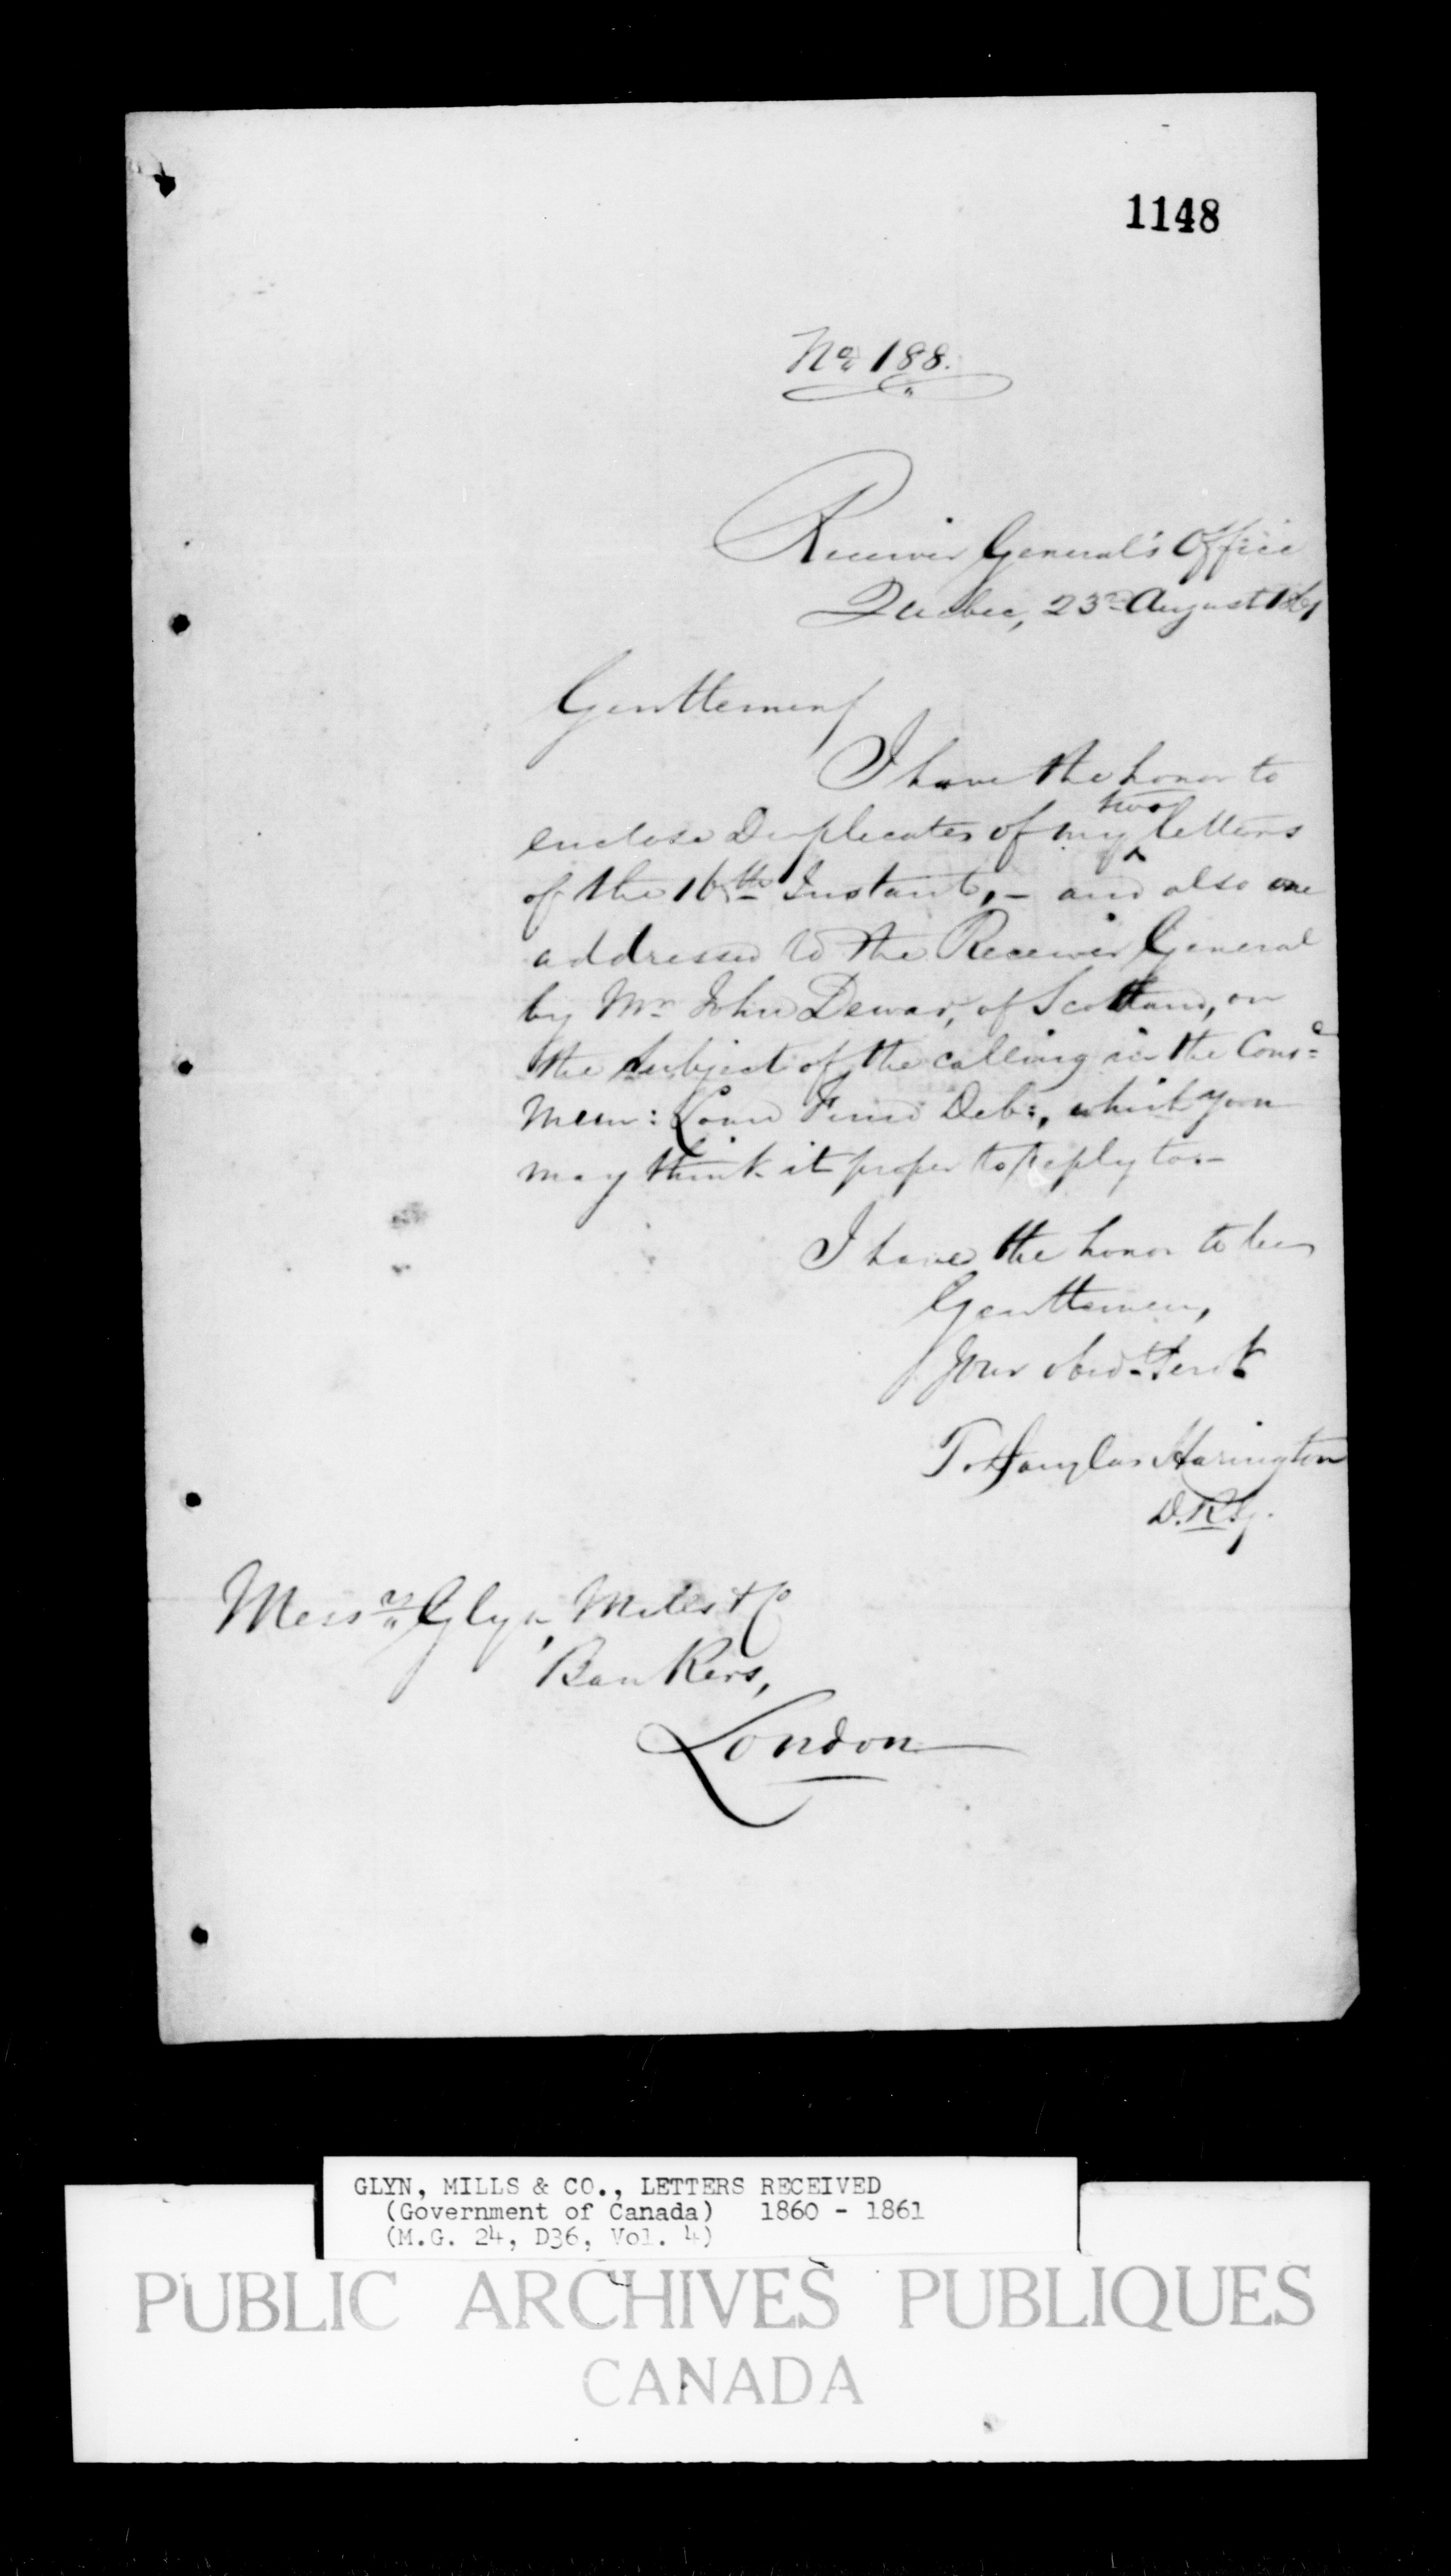 1148
No. 188.
Receiver General's Office
Quebec, 23rd August 1861
Gentlemen
I have the honor to
enclose Duplicates of my two letters
of the 16th Instant, - and also one
addressed to the Receiver General
by Mr John Dewar, of Scotland, on
the subject of the calling in the Cons:d
Mun: Loan Fund Deb:, which you
may think it proper to reply to. -
I have the honor to be
Gentlemen,
Your obed. Servt
T. Douglas Harington
D.R.G.
Messrs Glyn, Mills & Co
Bankers,
London
GLYN, MILLS & CO., LETTERS RECEIVED
(Government of Canada) 1860 - 1861
(M.G. 24, D36, Vol. 4)
PUBLIC ARCHIVES PUBLIQUES
CANADA